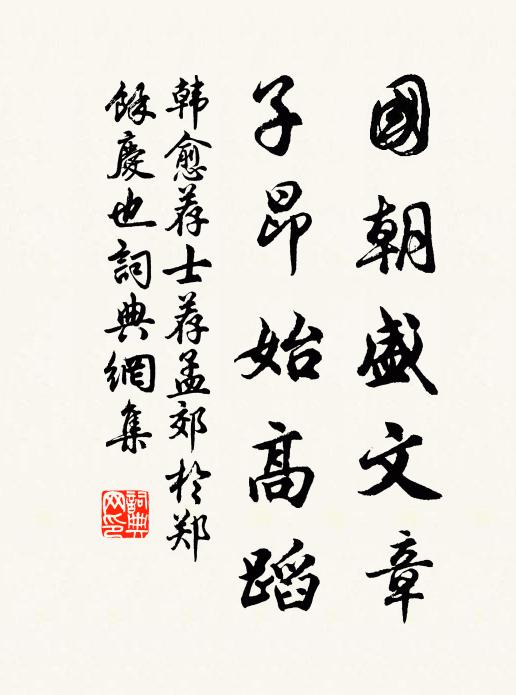 國朝盛文章
子昂始高蹈
韩愈荐士荐孟郊於郑
馀慶也詞典網集
詞典网印